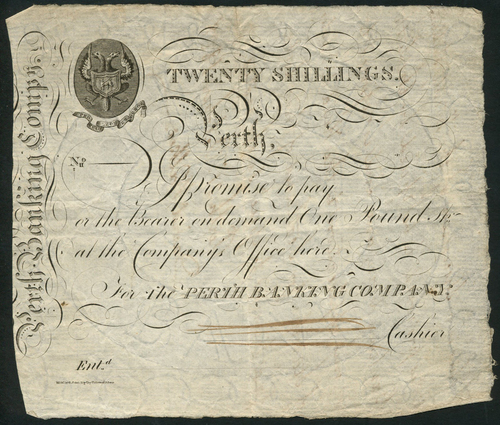 Perth Banking Compy.
TWENTY SHILLINGS.
Perth,
No
I promise to pay
or the Bearer on demand One Pound St
at the Company's Office here.
For the PERTH BANKING COMPANY.
Cashier
Ent.d